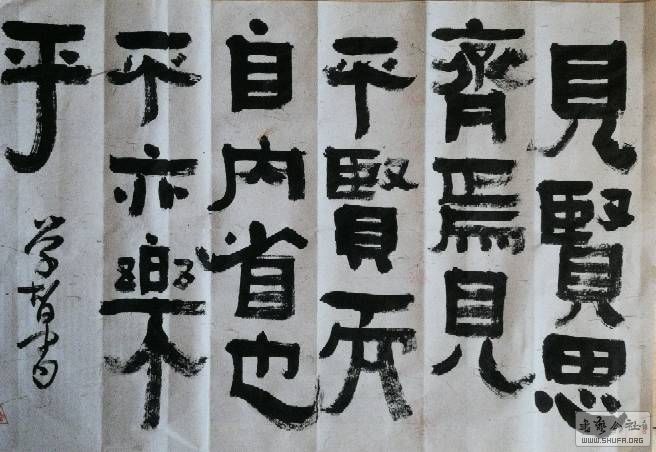 見賢思
齊焉見
不賢而
自内省也
不亦樂
乎
学書
书艺公社
WWW.SHUFA.ORG